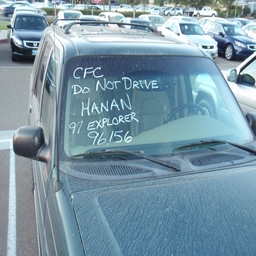 CFC
DO NOT DRIVE
HANAN
97 EXPLORER
96156